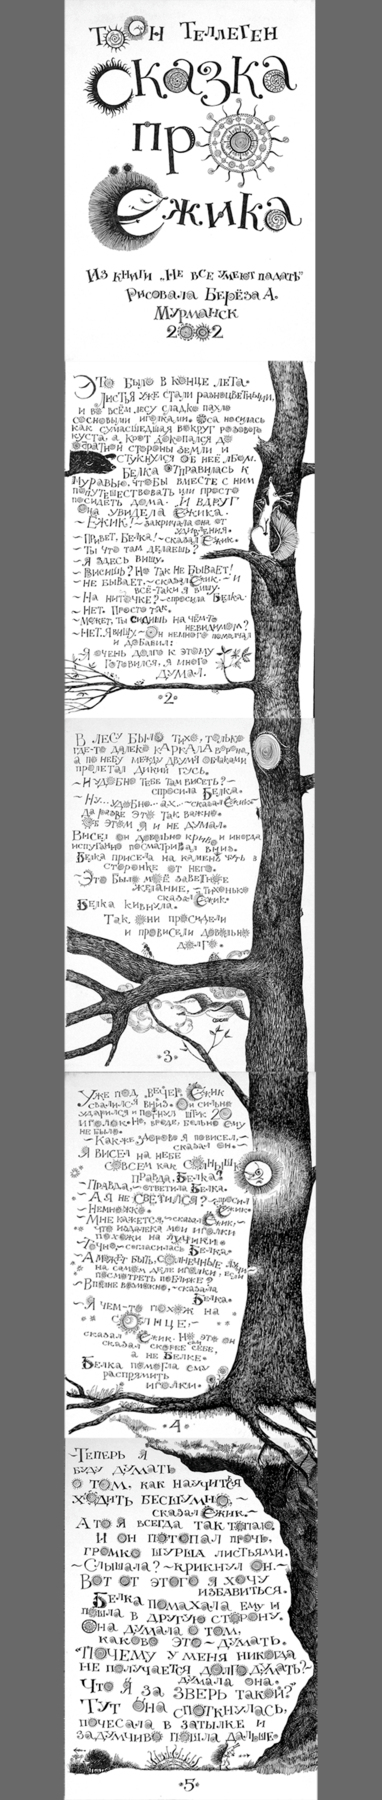 Тоон Теллеген
Сказка
про
Ёжика
Из книги „Не все умеют падать"
Рисовала Берёза А.
Мурманск
2002
Это было в конце лета.
Листья уже стали разноцветными,
и во всём лесу сладко пахло
сосновыми иголками. Оса носилась
как сумасшедшая вокруг розового
куста, а крот докопался до
обратной стороны земли и
стукнулся об неё лбом.
Белка отправилась к
Муравью, чтобы вместе с ним
попутешествовать или просто
посидеть дома. И вдруг
она увидела Ёжика.
~Ёжик!~ закричала она от
удивления.
~Привет, Белка!~ сказал Ёжик.
~Ты что там делаешь?
~Я здесь вишу.
~Висишь? Но так не бывает!
~Не бывает,~ сказал Ёжик,~ и
всё-таки я вишу.
~На ниточке?~ спросила Белка.
~Нет. Просто так.
~Может, ты сидишь на чём-то
невидимом?
~Нет. Я вишу.~ Он немного помолчал
и добавил:
~Я очень долго к этому
готовился, я много
думал.
•2•
В лесу было тихо, только
где-то далеко каркала ворона,
а по небу между двумя облаками
пролетал дикий гусь.
~И удобно тебе там висеть?~
спросила Белка.
~Ну... удобно... ах...~ сказал Ёжик~
да разве это так важно.
Об этом я и не думал.
Висел он довольно криво и иногда
испуганно посматривал вниз.
Белка присела на камень чуть в
сторонке от него.
~Это было моё заветное
желание,~ тихонько
сказал Ёжик.
Белка кивнула.
Так они просидели
и провисели довольно
долго.
•3•
Уже под вечер Ёжик
свалился вниз. Он сильно
ударился и погнул штук 20
иголок. Но, вроде, больно ему
не было.
~Как же здорово я повисел,~
сказал он.~
Я висел на небе
совсем как солнышко,
правда, Белка?
~Правда,~ ответила Белка.
~А я не светился?~ спросил
Ёжик.
~Немножко.
~Мне кажется,~ сказал Ёжик,~
что издалека мои иголки
похожи на лучики.
~Точно,~ согласилась Белка.
~А может быть, солнечные лучи~
на самом деле иголки, если
посмотреть поближе?
~Вполне возможно,~ сказала
Белка.
~Я чем-то похож на
солнце,~
сказал Ёжик. Но это он
сказал скорее сам себе,
а не Белке.
Белка помогла ему
распрямить
иголки.
•4•
~Теперь я
буду думать
о том, как научиться
ходить бесшумно,~
сказал Ёжик.~
А то я всегда так топаю.
И он потопал прочь,
громко шурша листьями.
~Слышала?~ крикнул он.~
Вот от этого я хочу
избавиться.
Белка помахала ему и
пошла в другую сторону.
Она думала о том,
каково это ~ думать.
"Почему у меня никогда
не получается долго думать?~
думала она.~
Что я за зверь такой?"
Тут она споткнулась,
почесала в затылке и
задумчиво пошла дальше.
•5•